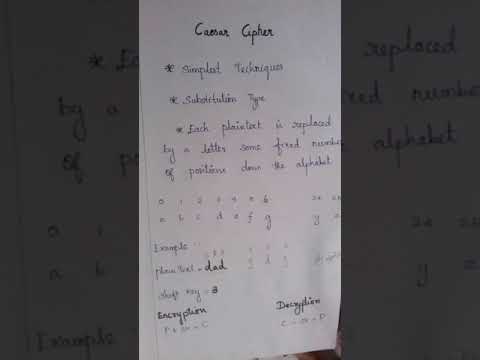 Caesar Cipher
* Simplest Techniques
* Substitution Type
* Each plaintext is replaced
by a letter some fixed number
of positions down the alphabet
0 1 2 3 4 5 6
a b c d e f g y z
Example :
plain text - dad
shift key = 3
Encryption Decryption